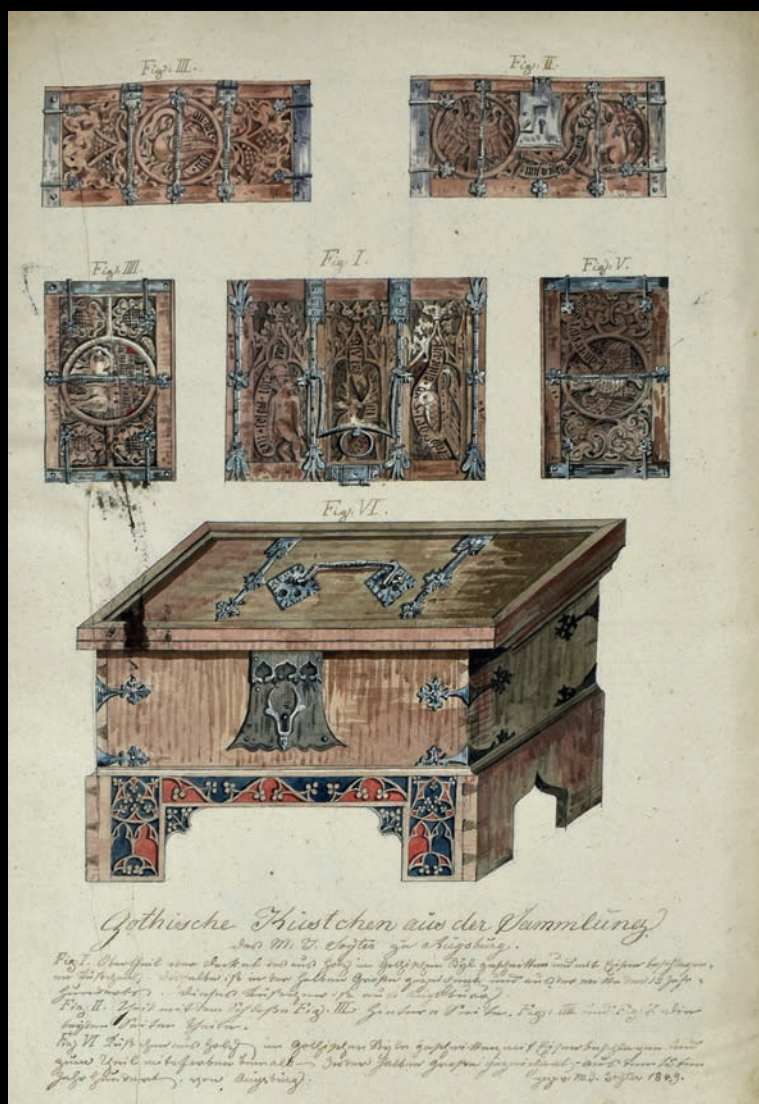 Fig. III.
Fig. II.
Fig. IIII.
Fig. I.
Fig. V.
Fig. VI.
Gothische Küstchen aus der Sammlung
des M. J. Soyter zu Augsburg.
Fig. I. Obertheil oder Deckel des aus Holz im Gothischen Styl geschnitten und mit Eisen beschlagen,
in der halben Große gezeichnet, und aus der mitte des 15 Jahr-
hunderts.
Fig. II. Theil mit dem Schloße Fig. III. Hintere Seite. Fig. IIII und Fig. V. die
beyden Seiten Theile.
Fig. VI aus Holz im Gothischen Style geschnitten mit Eisen beschlagen und
zum Theil mit Farben bemalt – In der halben Große gezeichnet – aus dem 15ten
Jahrhundert, von Augsburg. M. J. Soyter 1843.